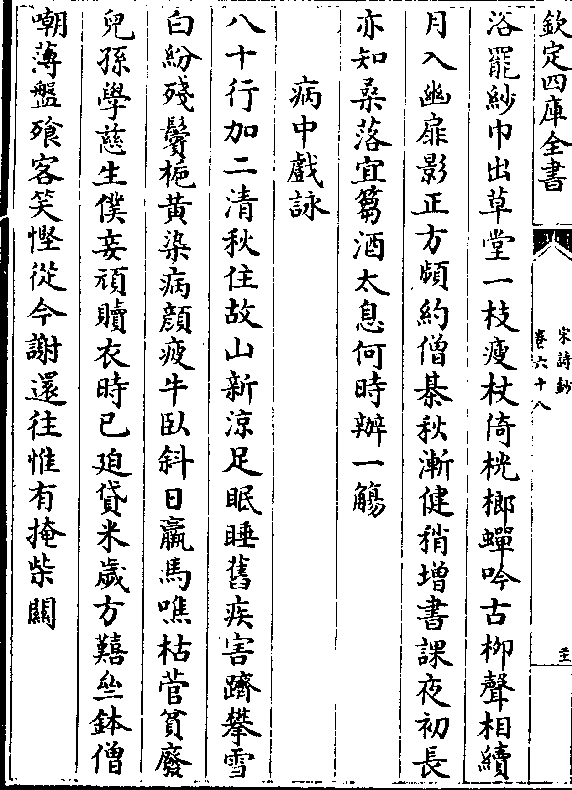 欽定四庫全書
宋詩鈔
卷六十八
浴罷紗巾出草堂一枝瘦杖倚桄榔蟬吟古柳聲相續
月入幽扉影正方頗約僧棊秋漸健稍增書課夜初長
亦知桑落宜篘酒太息何時辦一觴
病中戲詠
八十行加二清秋住故山新涼足眠睡舊疾害躋攀雪
白紛殘鬢梔黃染病顔疲牛臥斜日羸馬噍枯菅貧廢
兒孫學慈生僕妾頑贖衣時已廹貸米歲方囏㘴鉢僧
嘲薄盤飱客笑慳從今謝還往惟有掩柴關